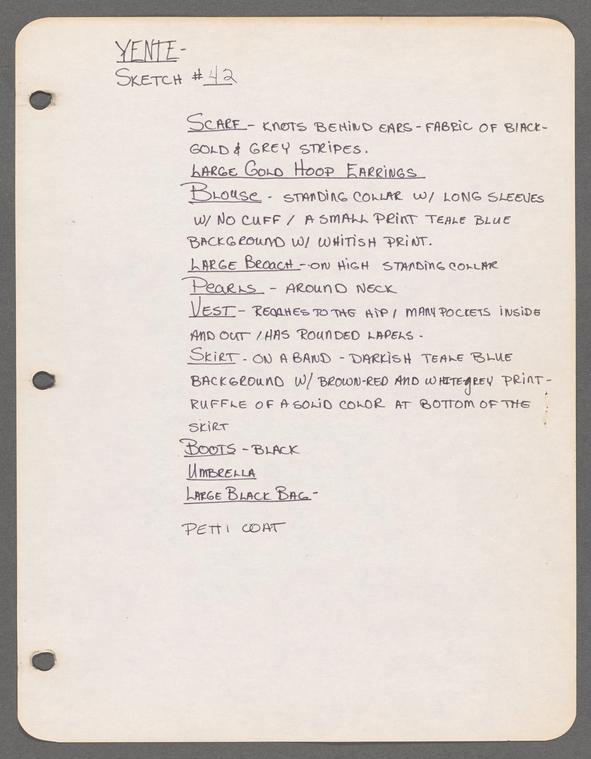 YENTE-
SKETCH #42
SCARF - KNOTS BEHIND EARS - FABRIC OF BLACK-
GOLD & GREY STRIPES.
LARGE GOLD HOOP EARRINGS
BLOUSE - STANDING COLLAR W/ LONG SLEEVES
W/ NO CUFF / A SMALL PRINT TEALE BLUE
BACKGROUND W/ WHITISH PRINT.
LARGE BROACH - ON HIGH STANDING COLLAR
PEARLS - AROUND NECK
VEST - REACHES TO THE HIP / MANY POCKETS INSIDE
AND OUT / HAS ROUNDED LAPELS -
SKIRT - ON A BAND - DARKISH TEALE BLUE
BACKGROUND W/ BROWN-RED AND WHITE grey PRINT -
RUFFLE OF A SOLID COLOR AT BOTTOM OF THE
SKIRT
BOOTS - BLACK
UMBRELLA
LARGE BLACK BAG -
PETTI COAT